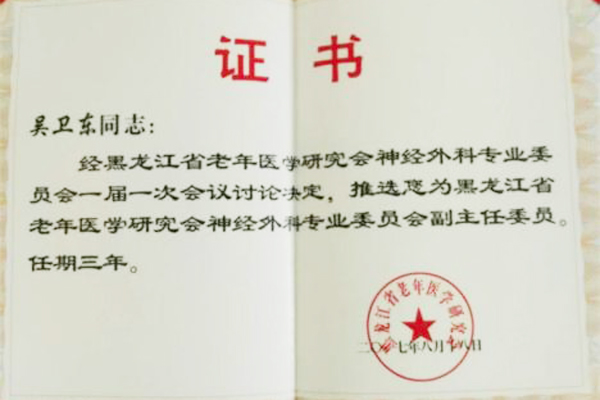 证书
吴卫东同志：
经黑龙江省老年医学研究会神经外科专业委
员会一届一次会议讨论决定，推选您为黑龙江省
老年医学研究会神经外科专业委员会副主任委员。
任期三年。
黑龙江省老年医学研究会
二〇一七年八月十八日